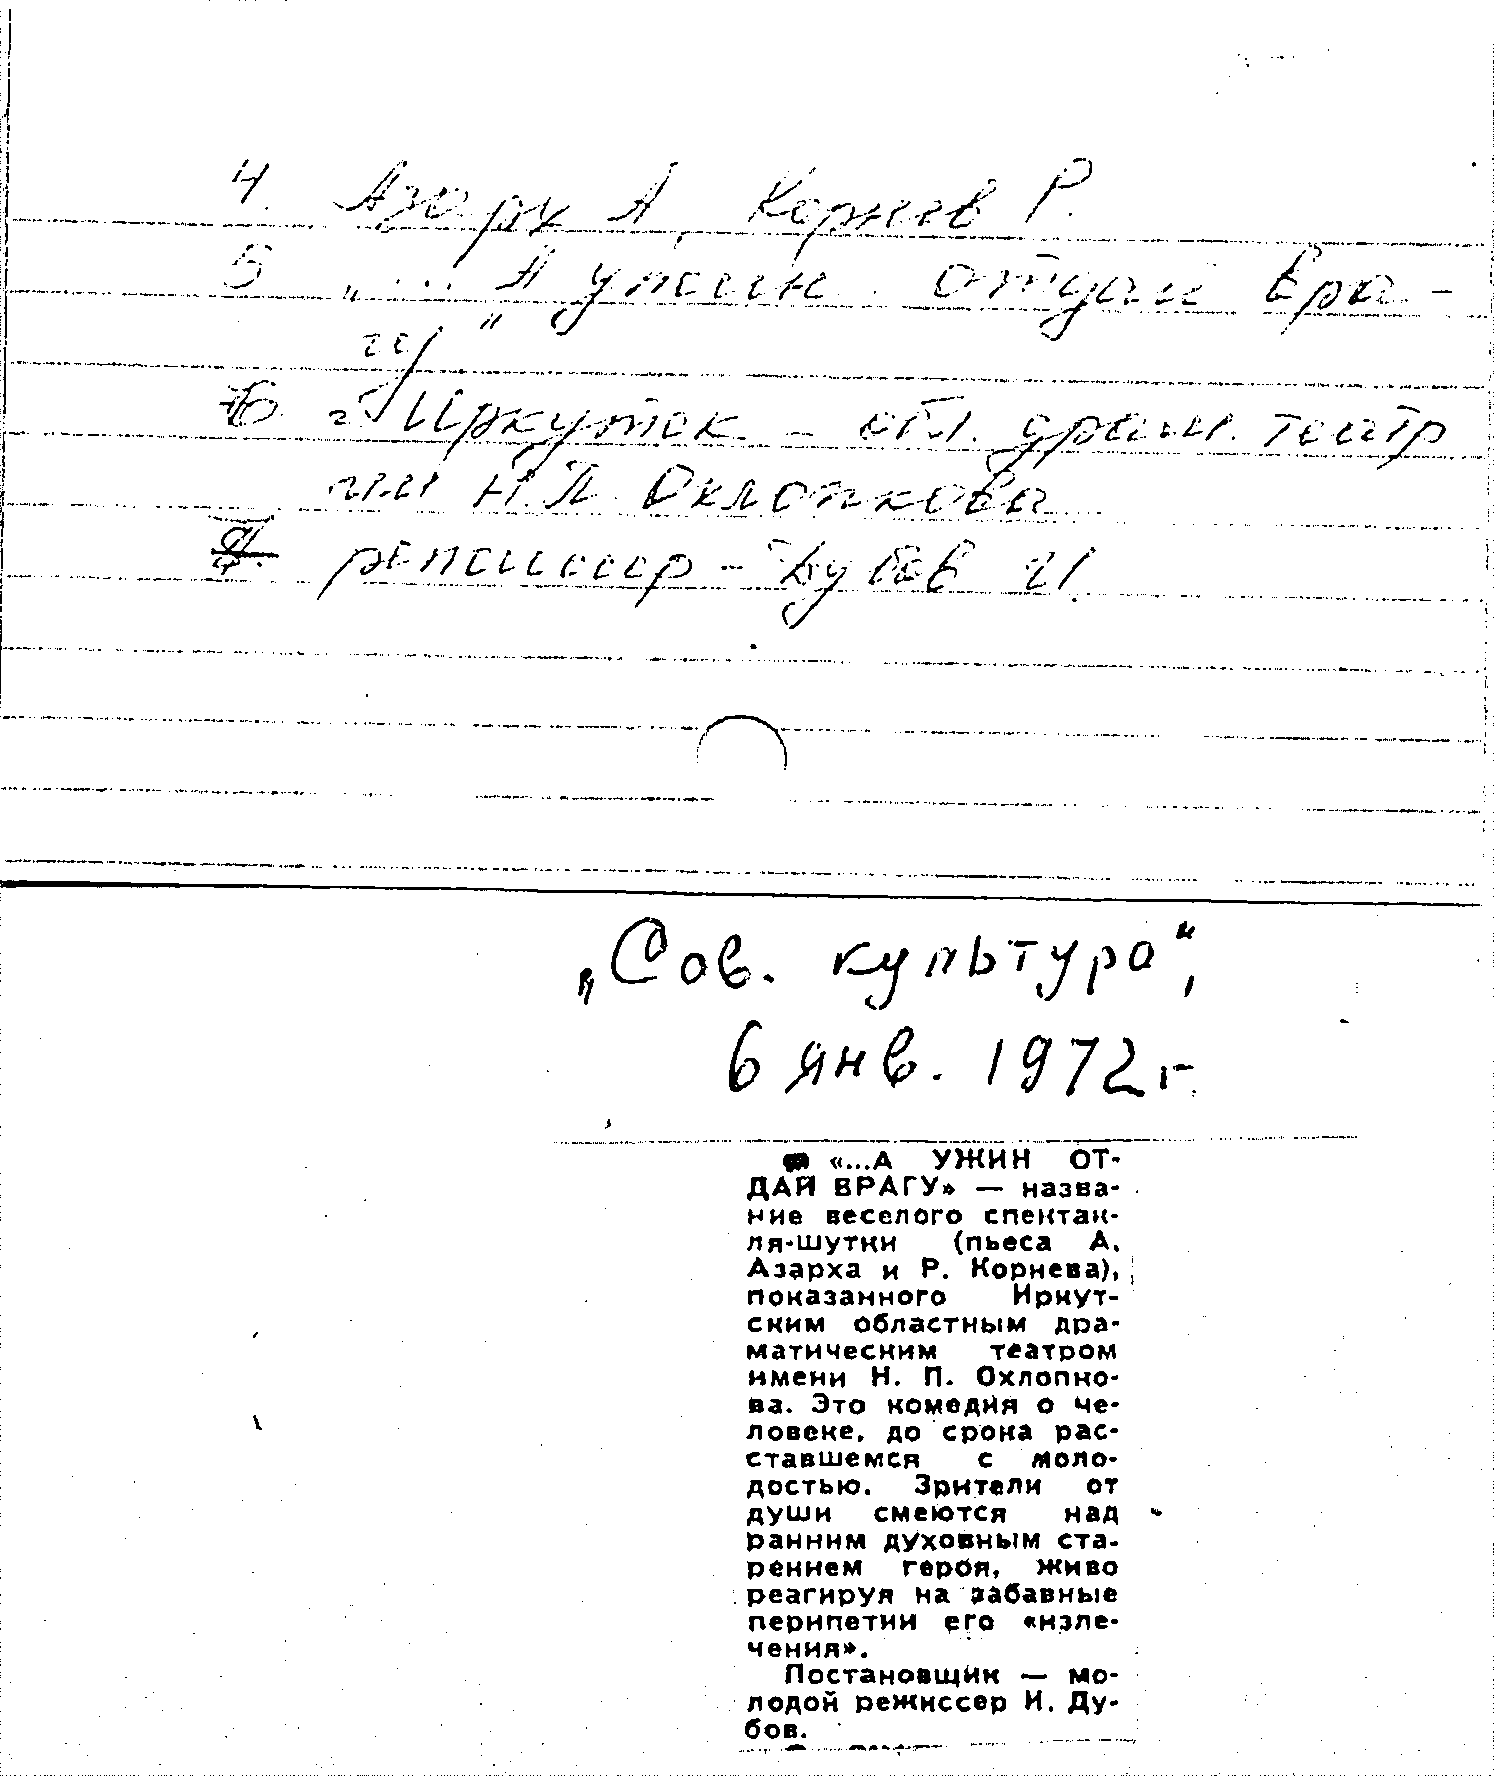 4. Азарх А, Корнев Р.
5 „... А ужин отдай вра-
гу“
6 г. Иркутск - обл. драм. театр
им Н.П. Охлопкова
режиссер - Дубов И.
„Сов. культура“,
6 янв. 1972 г.
«...А УЖИН ОТ-
ДАЙ ВРАГУ» — назва-
ние веселого спектак-
ля-шутки (пьеса А.
Азарха и Р. Корнева),
показанного Иркут-
ским областным дра-
матическим театром
имени Н. П. Охлопко-
ва. Это комедия о че-
ловеке, до срока рас-
ставшемся с моло-
достью. Зрители от
души смеются над
ранним духовным ста-
рением героя, живо
реагируя на забавные
перипетии его «изле-
чения».
Постановщик — мо-
лодой режиссер И. Ду-
бов.